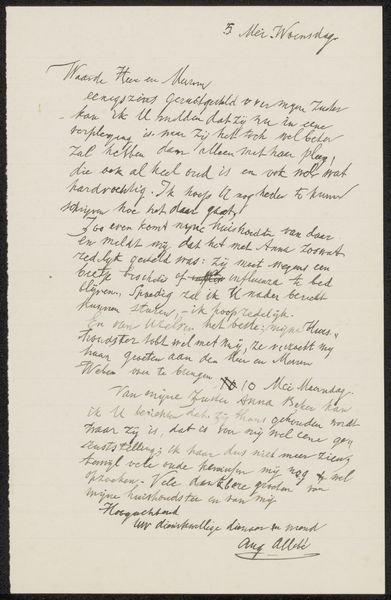 5 Mei. Woensdag.
Waarde Heer en Mevrw
eenigszins gerustgesteld over mijne Zuster
kan ik U melden dat zij nu in eene
verpleging is waar zij het toch wel beter
zal hebben dan alleen met haar
die ook al heel oud is en ook wat
hardvochtig. Ik hoop U nog nader te kunnen
schrijven hoe het daar gaat.
Zoo even komt mijne huishoudster van daar
en meldt mij, dat het met Anna zoowat
redelijk gesteld was: zij moet wegens een
beetje bronchitis of influenza te bed
blijven. Spoedig zal ik U nader bericht
kunnen sturen, - ik hoop redelijk.
En van Uzelven het beste; mijne Huis-
houdster tobt wel met mij, ze verzocht mij
haar groeten aan den Heer en Mevrw
Weber over te brengen. 10 Mei Maandag.
Van mijne Zuster Anna kan
ik U berichten dat zij thans gehouden wordt
waar zij is, dat is voor mij wel eene
ik haar dus niet meer
terwijl vele oude kennissen mij nog wel
opzoeken. Vele dankbare groeten van
mijne huishoudster en van mij
Hoogachtend
Uw dienstwillige dienaar en vriend
Aug Allebé